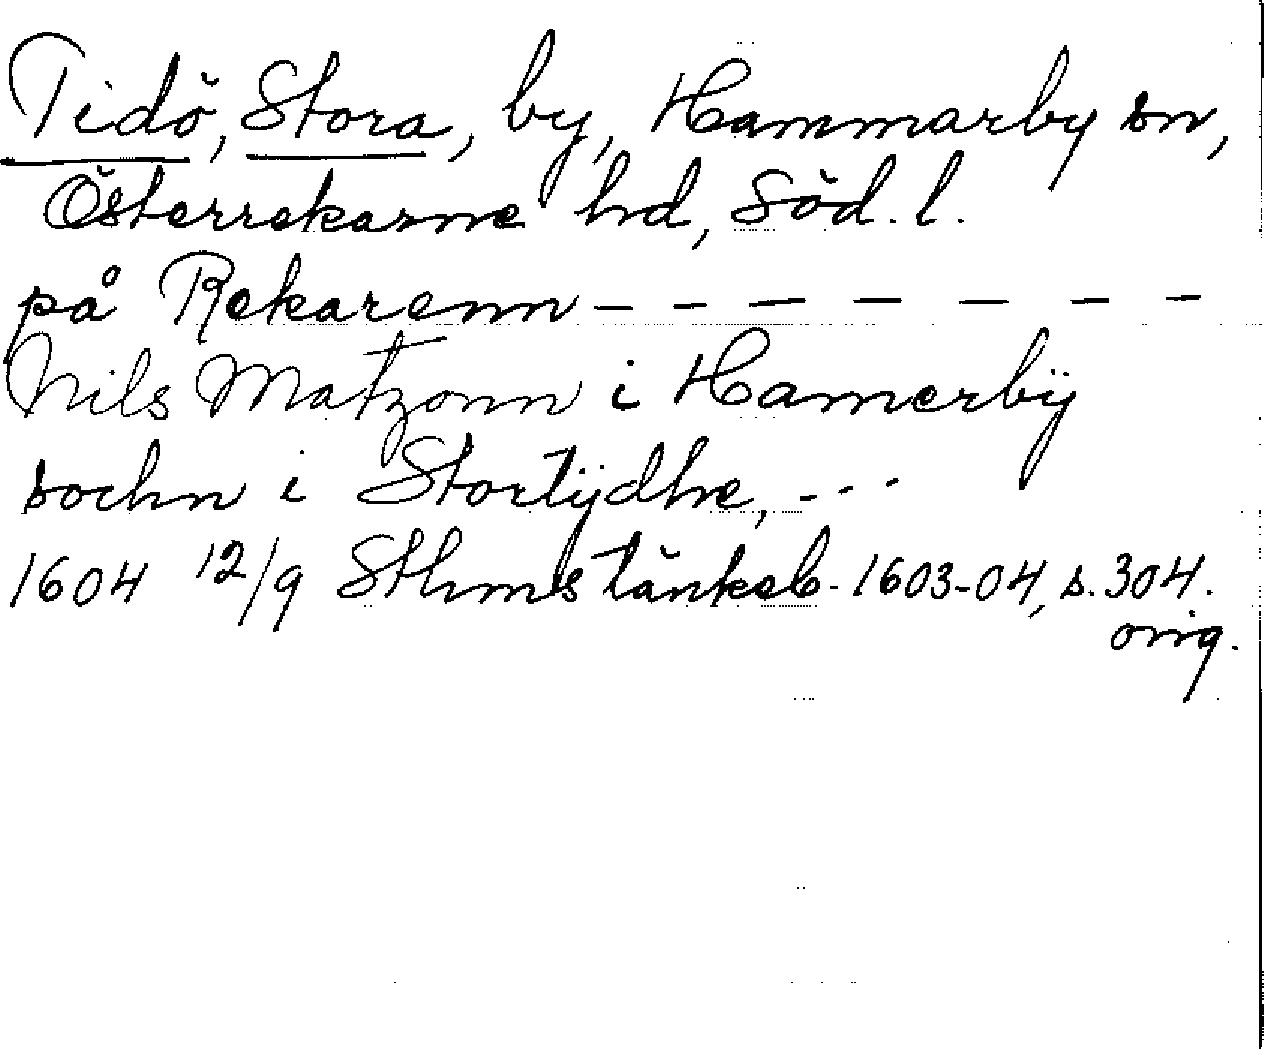 Tidö, Stora, by, Hammarby sn,
Österrekarne hd, Söd. l.
på Rekarenn – – – – – – –
Nils Matzonn i Hamerbÿ
sochn i Stortÿdhe, - - -
1604 12/9 Sthms tänkeb. 1603-04, s. 304.
orig.